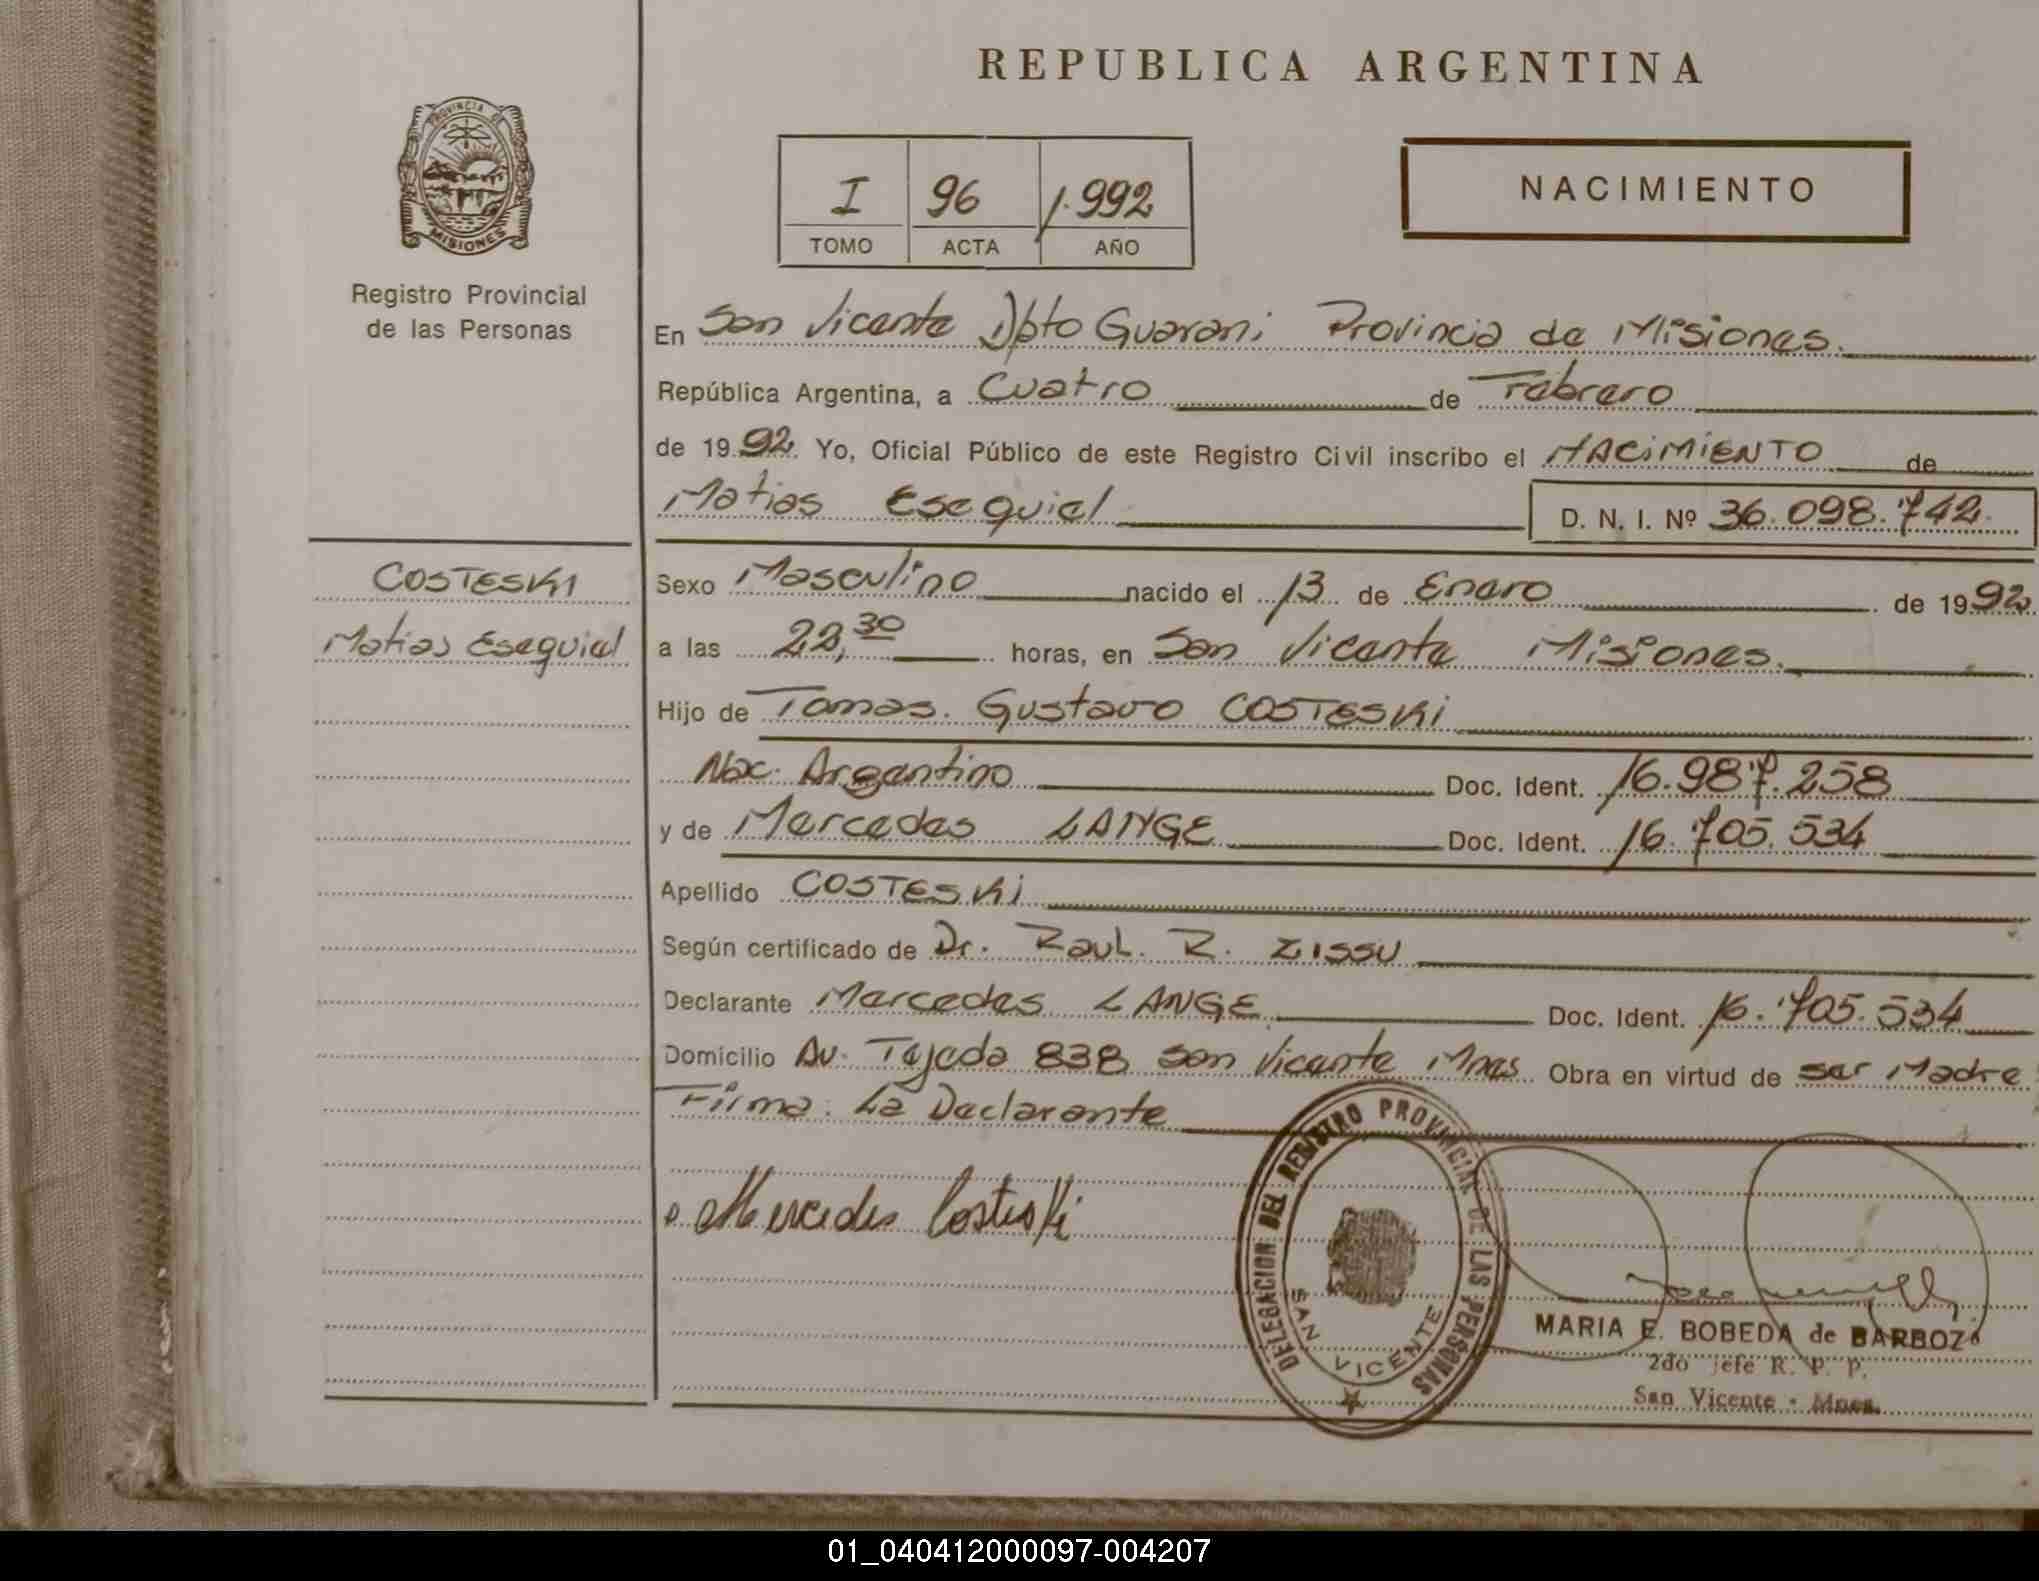 REPUBLICA ARGENTINA
PROVINCIA DE
MISIONES
Registro Provincial
de las Personas
I 96 1.992
TOMO ACTA AÑO
NACIMIENTO
En San Vicente Dpto Guarani Provincia de Misiones.
República Argentina, a Cuatro de Febrero
de 1992. Yo, Oficial Público de este Registro Civil inscribo el NACIMIENTO de
Matias Esequiel D. N. I. Nº 36.098.742
COSTESKI
Matias Esequiel
Sexo Masculino nacido el 13 de Enero de 1992
a las 22,30 horas, en San Vicente Misiones.
Hijo de Tomas. Gustavo COSTESKi
Nac. Argentino Doc. Ident. 16.987.258
y de Mercedes LANGE Doc. Ident. 16.705.534
Apellido COSTESKi
Según certificado de Dr. Raul. R. ZISSU
Declarante Mercedes LANGE Doc. Ident. 16.705.534
Domicilio Av. Tejeda 838 San Vicente Mnes Obra en virtud de ser Madre
Firma: La Declarante
Mercedes Costeski
DELEGACION DEL REGISTRO PROVINCIAL DE LAS PERSONAS
SAN VICENTE
MARIA E. BOBEDA de BARBOZA
2do Jefe R. P. P.
San Vicente - Mnes.
01_040412000097-004207